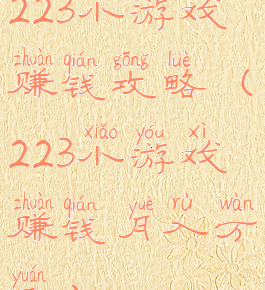 223小游戏
zhuàn qián gōng luè
赚钱攻略（
xiǎo yóu xì
223小游戏
zhuàn qián yuè rù wàn
赚钱 月入万
yuán